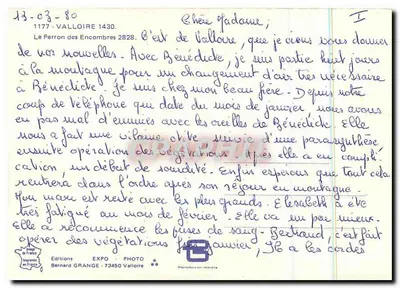 13-03-80
I
Chère Madame,
1177 - VALLOIRE 1430.
Le Perron des Encombres 2828.
C'est de Valloire, que je viens vous donner
de nos nouvelles. Avec Bénédicte, je suis partie huit jours
à la montagne pour un changement d'air très nécessaire
à Bénédicte. Je suis chez mon beau frère. Depuis notre
coup de téléphone qui date du mois de janvier nous avons
eu pas mal d'ennuies avec les oreilles de Bénédicte. Elle
nous a fait une vilaine otite suivie d'une parasynthèse
ensuite opération des végétations. Après elle a eu compli-
cation, un début de surdité. Enfin espérons que tout cela
rentrera dans l'ordre après son séjour en montagne.
Mon mari est resté avec les plus grands. Elisabeth a été
très fatigué au mois de février. Elle va un peu mieux.
Elle a recommencé les fuses de sang. Bertrand, c'est fait
opérer des végétations fin janvier, Il a les cordes
Editions EXPO - PHOTO
Bernard GRANGE - 73450 Valloire